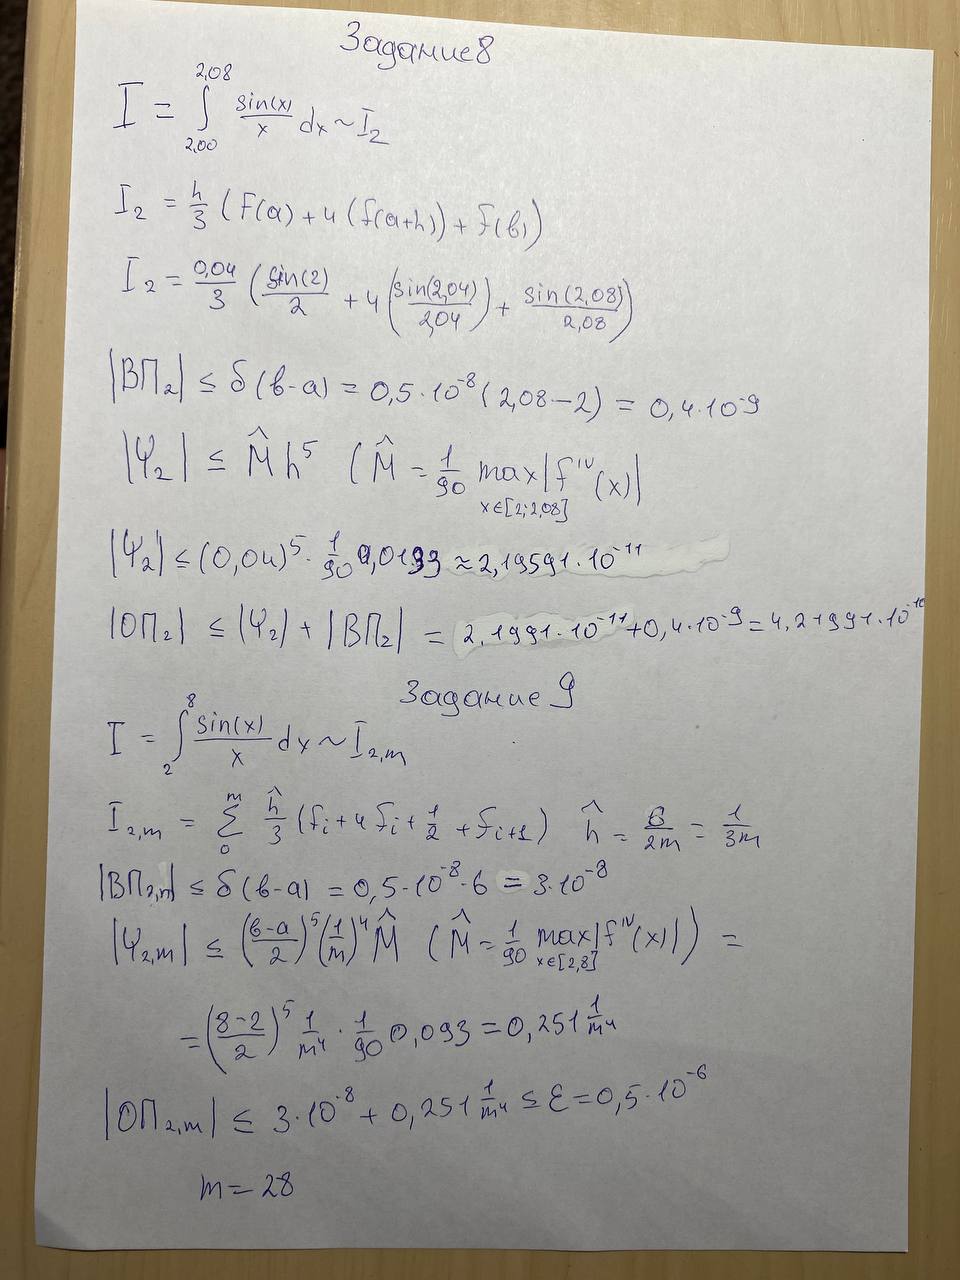 Задание 8
I = ∫_{2,00}^{2,08} sin(x)/x dx ~ I₂
I₂ = h/3 (f(a) + 4 (f(a+h)) + f(b))
I₂ = 0,04/3 (sin(2)/2 + 4 (sin(2,04)/2,04) + sin(2,08)/2,08)
|ВП₂| ≤ δ(b-a) = 0,5·10⁻⁸(2,08-2) = 0,4·10⁻⁹
|Ψ₂| ≤ M̂h⁵ (M̂ = 1/90 max_{x∈[2;2,08]}|f^{IV}(x)|
|Ψ₂| ≤ (0,04)⁵· 1/90 0,0193 ≈ 2,19591·10⁻¹¹
|ОП₂| ≤ |Ψ₂| + |ВП₂| = 2,1991·10⁻¹¹+0,4·10⁻⁹ = 4,21991·10⁻¹⁰
Задание 9
I = ∫_{2}^{8} sin(x)/x dx ~ I_{2,m}
I_{2,m} = Σ_{0}^{m} ĥ/3 (f_i + 4 f_i + 1/2 + f_{i+1}) ĥ = 6/2m = 1/3m
|ВП_{2,m}| ≤ δ(b-a) = 0,5·10⁻⁸·6 = 3·10⁻⁸
|Ψ_{2,m}| ≤ ((b-a)/2)⁵(1/m)⁴ M̂ (M̂ = 1/90 max_{x∈[2,8]}|f^{IV}(x)|) =
= ((8-2)/2)⁵ 1/m⁴ · 1/90 0,093 = 0,251 1/m⁴
|ОП_{2,m}| ≤ 3·10⁻⁸ + 0,251 1/m⁴ ≤ ε = 0,5·10⁻⁶
m = 28